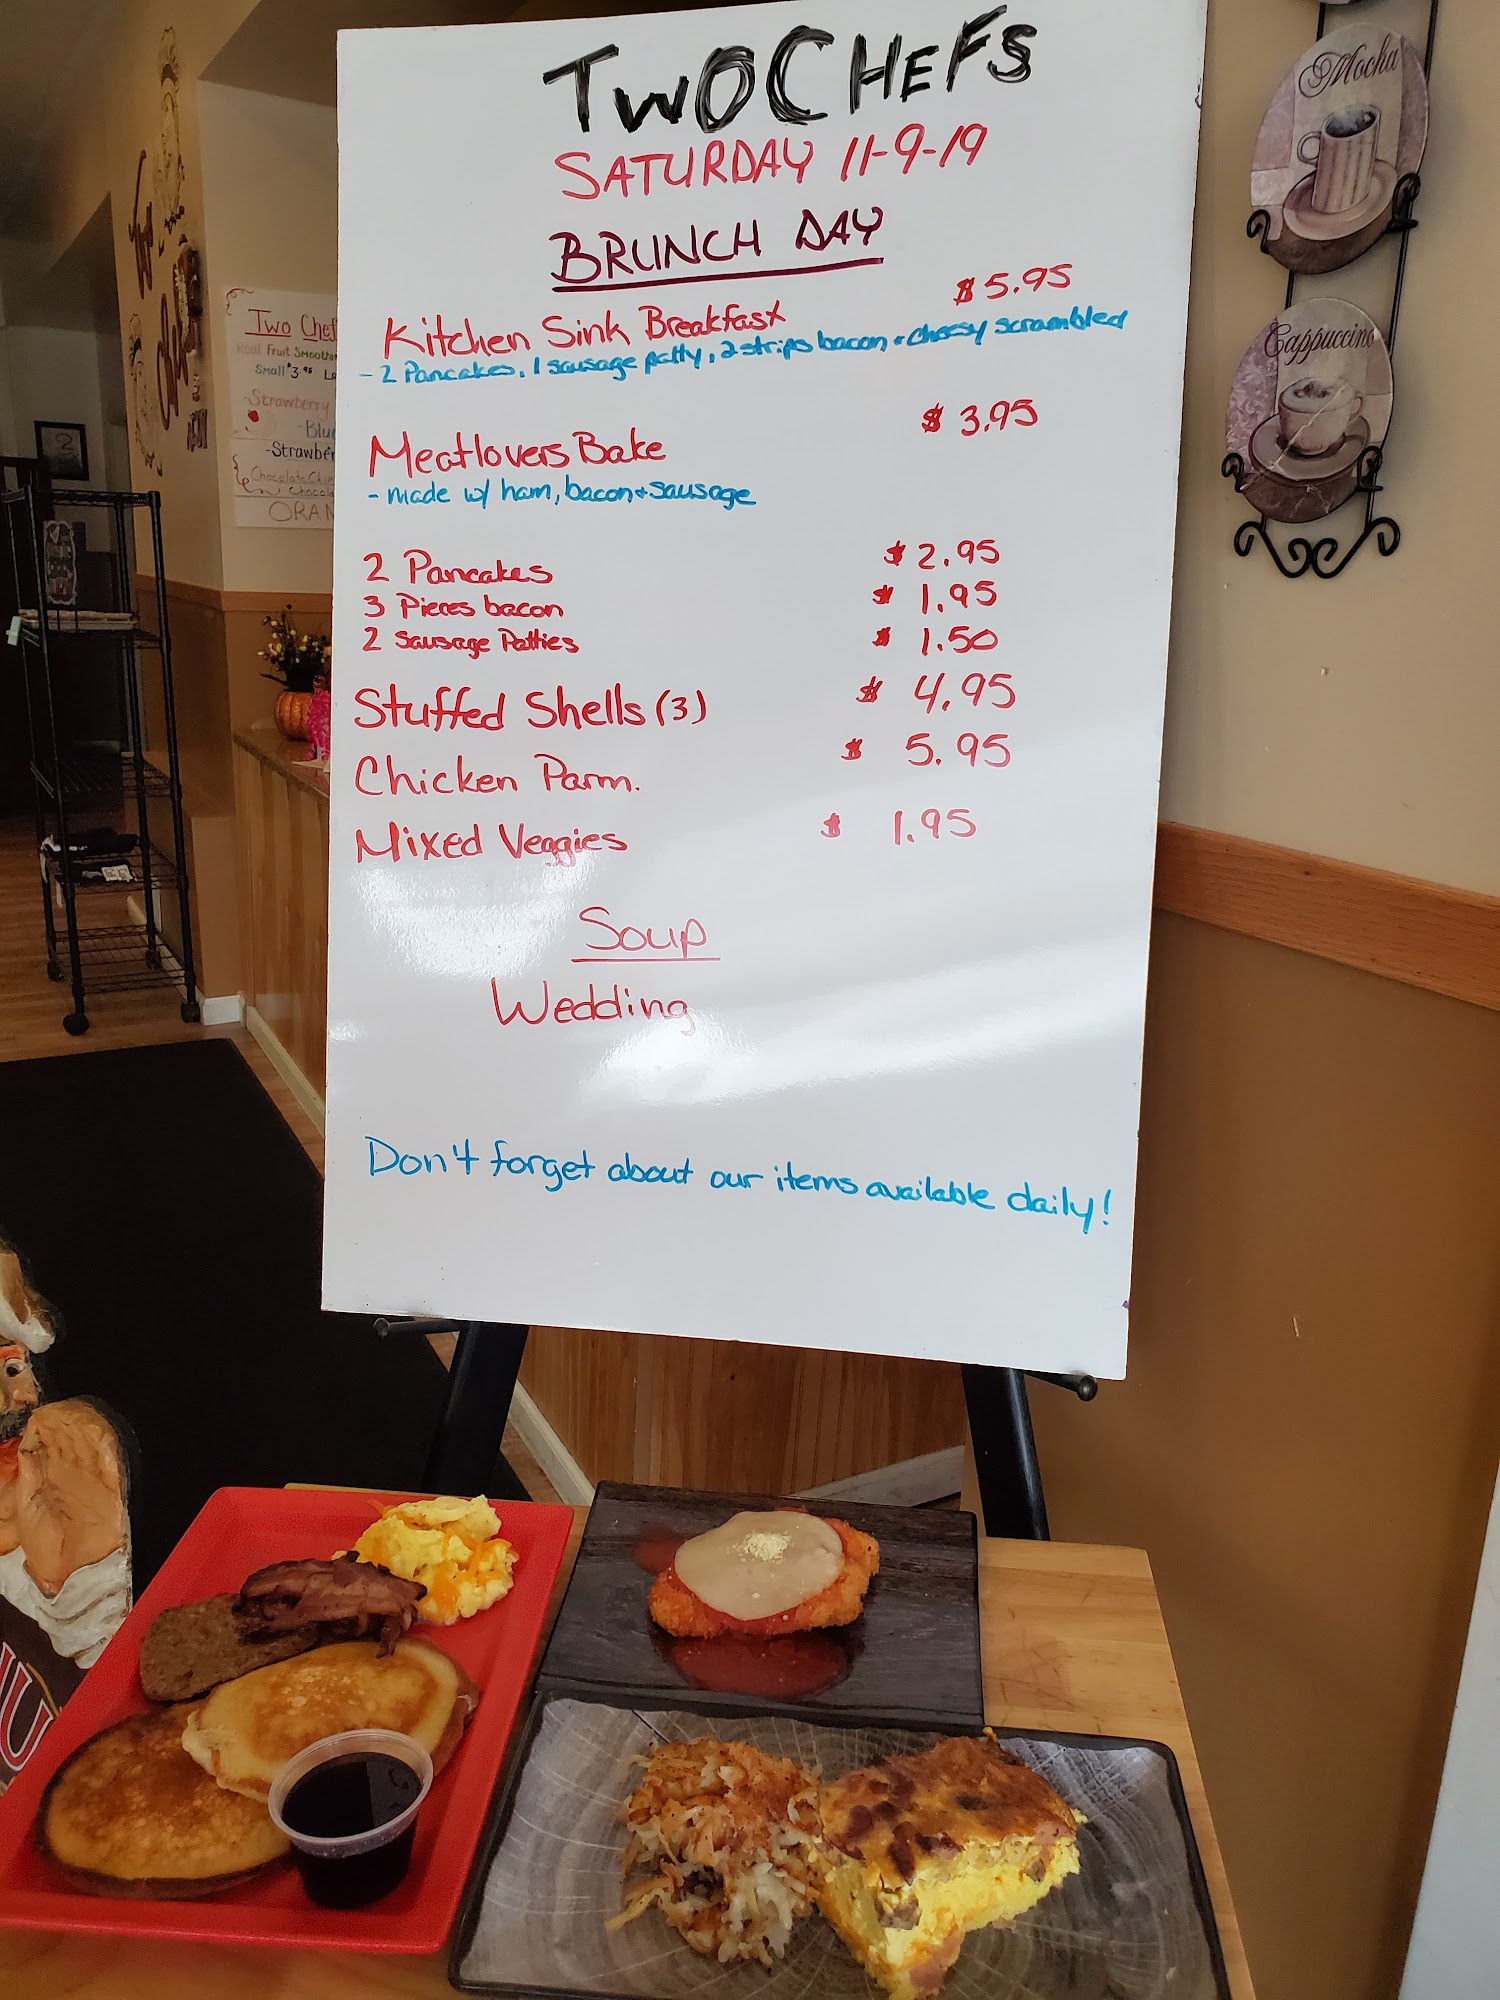 TWO CHEFS
SATURDAY 11-9-19
BRUNCH DAY
Kitchen Sink Breakfast $5.95
- 2 Pancakes, 1 sausage patty, 2 strips bacon + cheesy scrambled
Meatlovers Bake $3.95
- made w/ ham, bacon + sausage
2 Pancakes $2.95
3 Pieces bacon $1.95
2 Sausage Patties $1.50
Stuffed Shells (3) $4.95
Chicken Parm. $5.95
Mixed Veggies $1.95
Soup
Wedding
Don't forget about our items available daily!
Mocha
Cappuccino
Two Chef
Real Fruit Smooth
Small $3.95
-Strawberry
-Blu
-Strawber
Chocolate Chi
Chocol
ORAN
Two